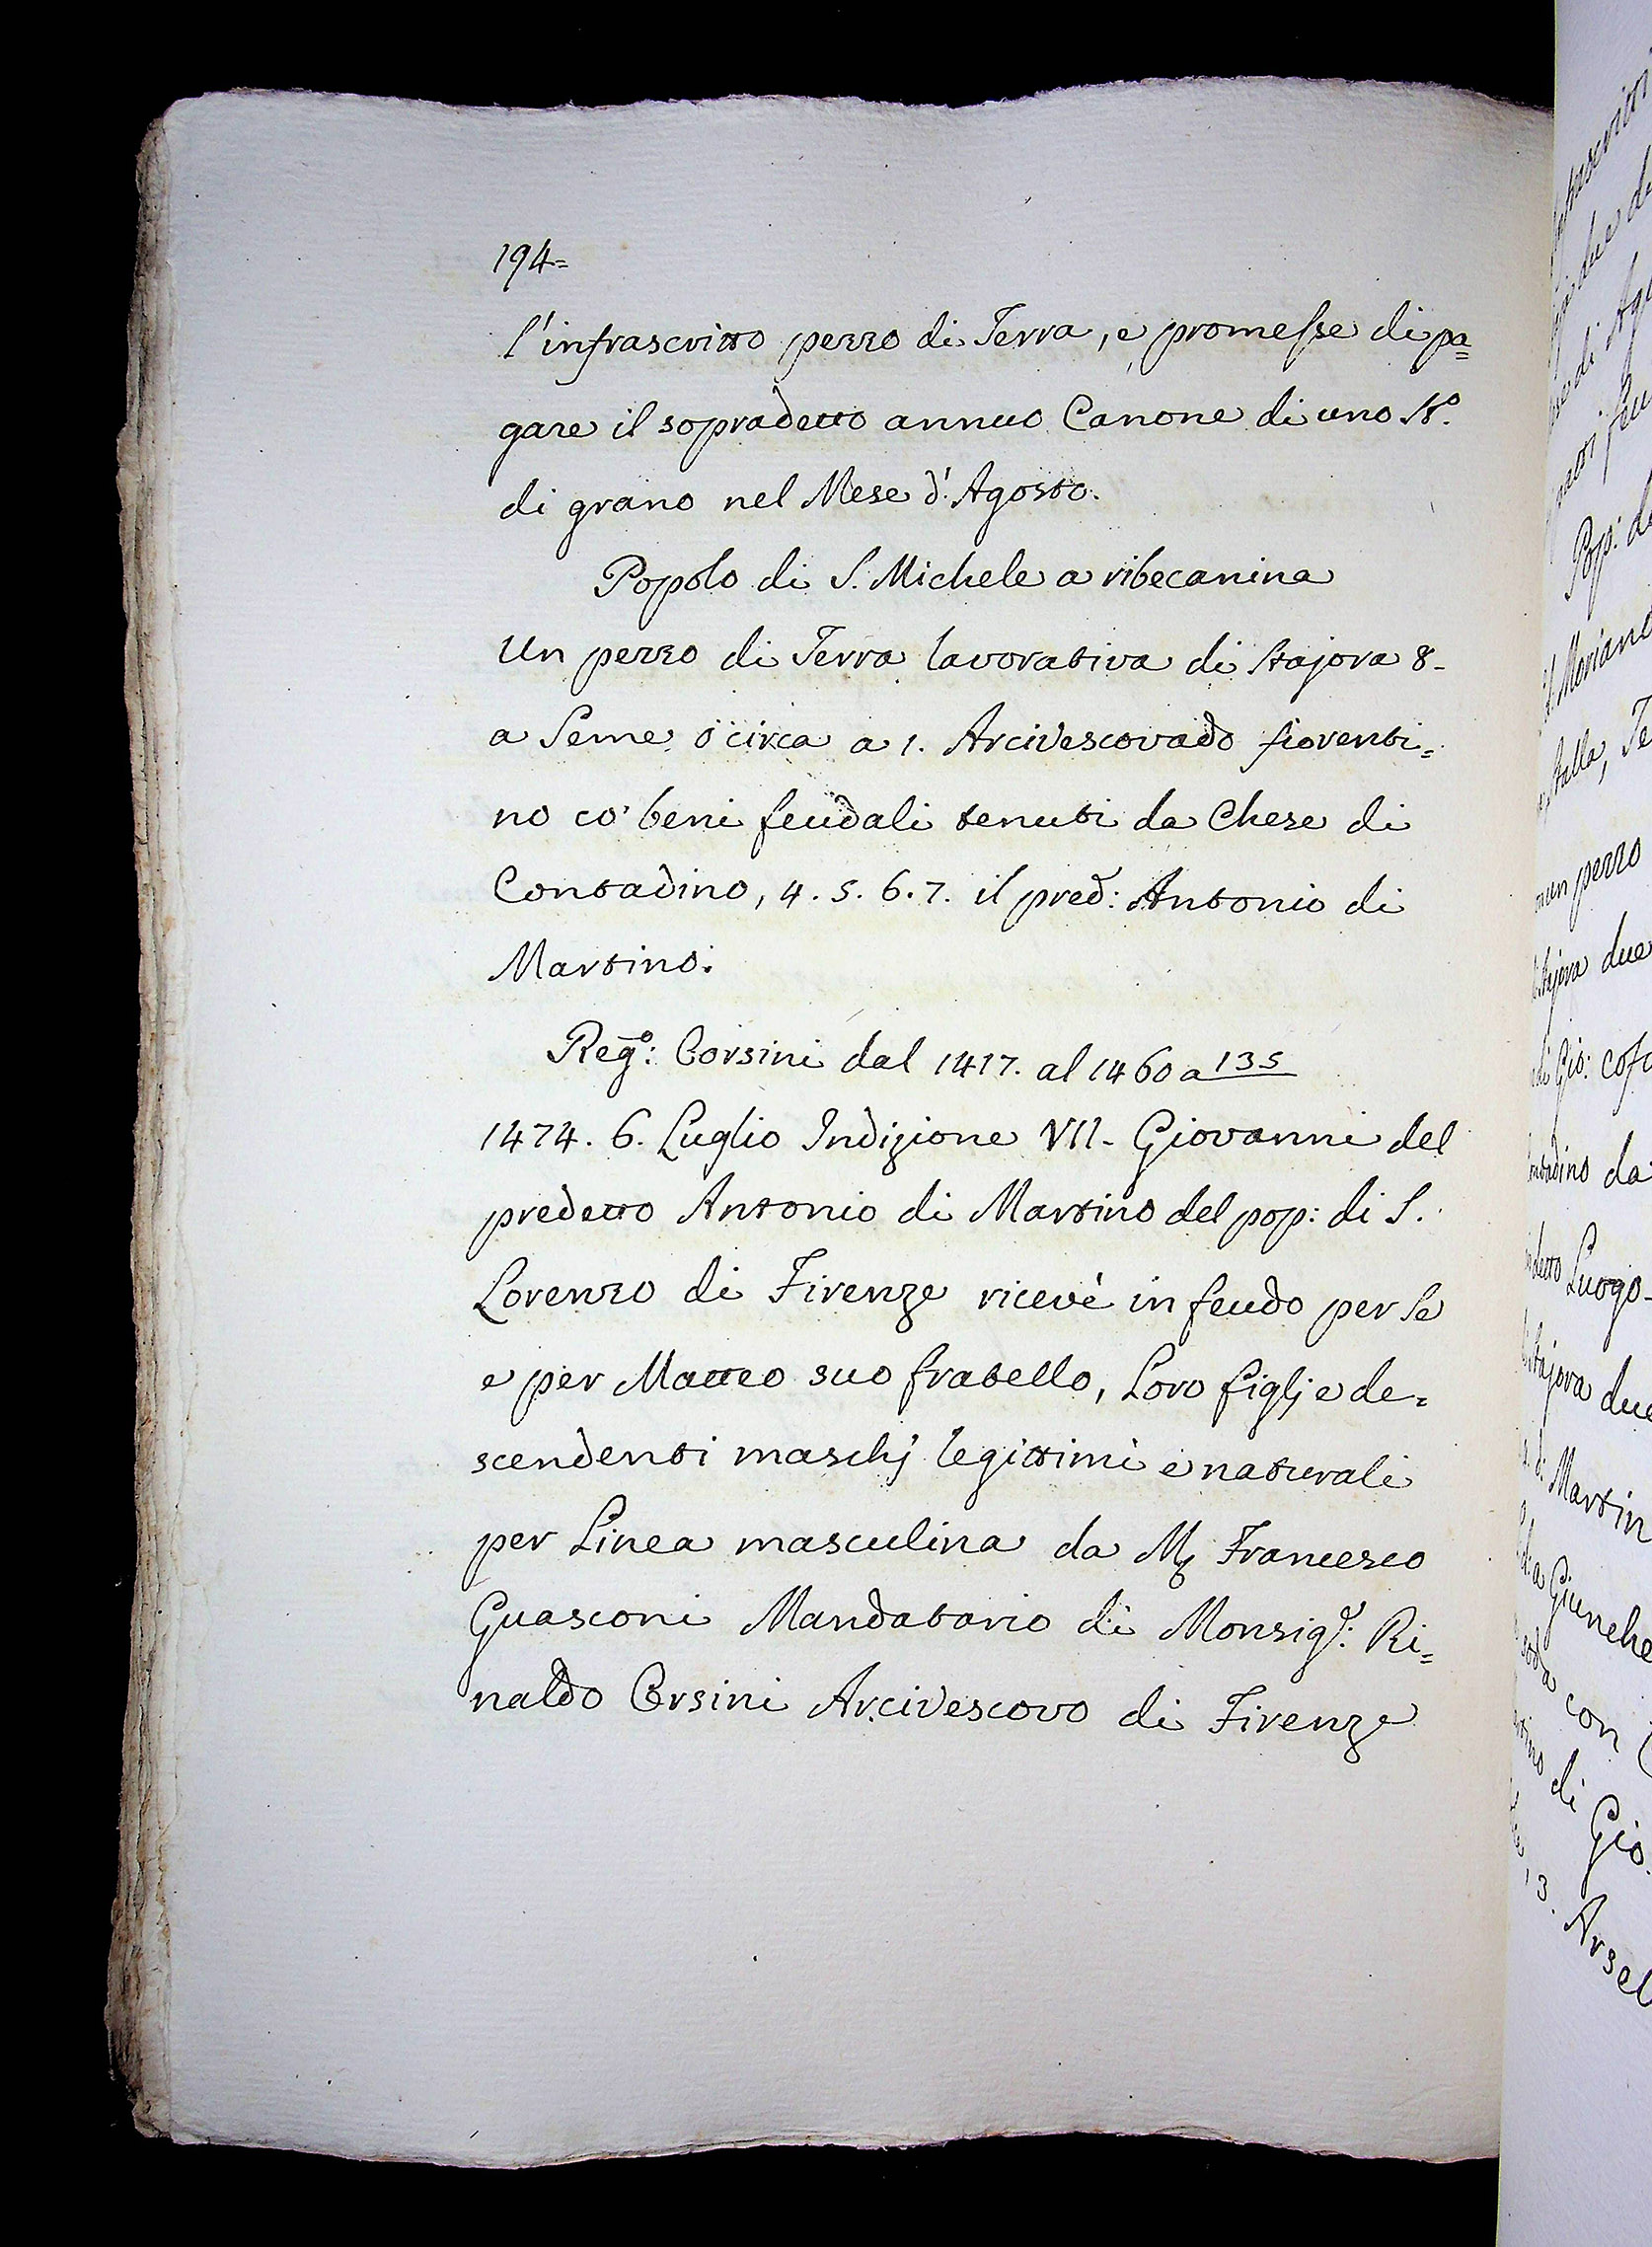 194=
l'infrascritto pezzo di Terra, e promesse di pa=
gare il sopradetto annuo Canone di uno St.º
di grano nel Mese d'Agosto.
Popolo di S. Michele a ribecanina
Un pezzo di Terra lavorativa di stajora 8-
a Seme ò circa a 1. Arcivescovado fiorenti=
no co' beni feudali tenuti da Chese di
Contadino, 4. 5. 6. 7. il pred: Antonio di
Martino.
Reg.º: Corsini dal 1417. al 1460 a 135
1474. 6. Luglio Indizione VII. Giovanni del
predetto Antonio di Martino del pop: di S.
Lorenzo di Firenze ricevè in feudo per se
e per Matteo suo fratello, Loro figlj e de=
scendenti maschj legittimi e naturali
per Linea masculina da M. Francesco
Guasconi Mandatario di Monsig.r: Ri=
naldo Orsini Arcivescovo di Firenze
due
Pop:
Moriano
stalla, Te
un pezzo
stajora due
di Gio:
Contadino da
detto Luogo-
stajora due
Martin
con
di Gio.
3.